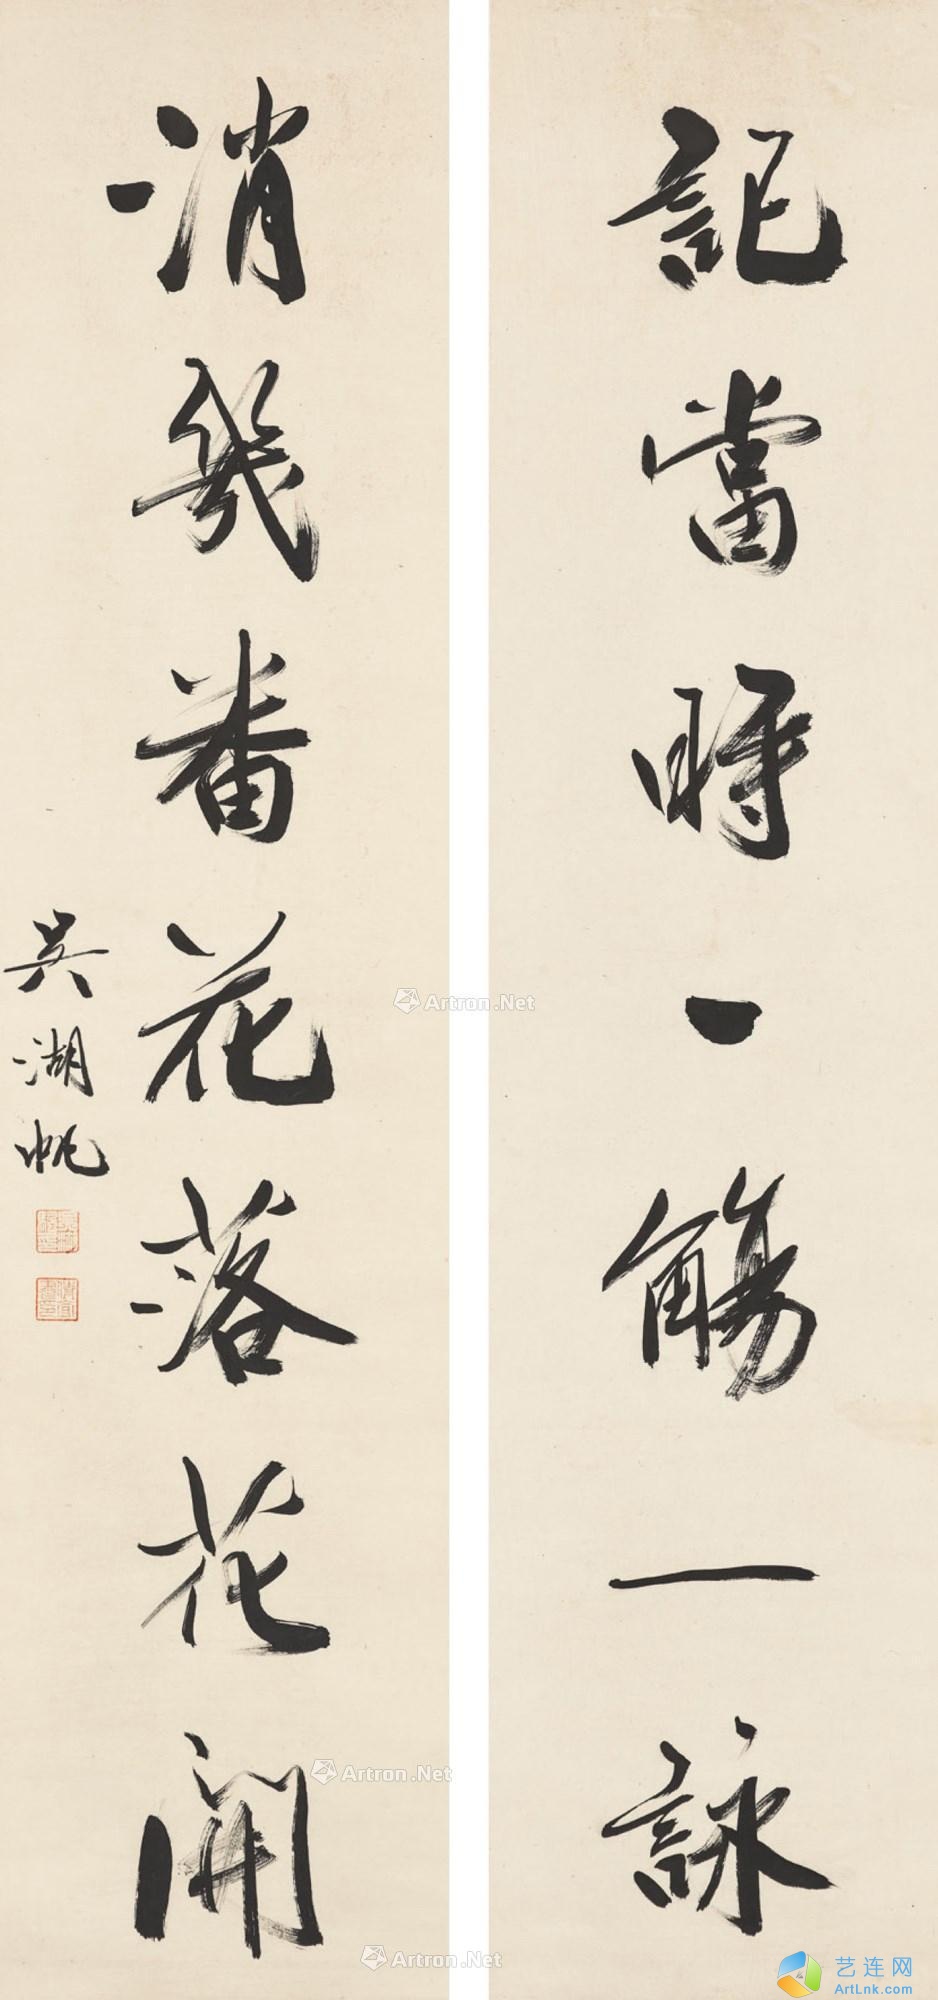 記當時一觴一詠
消幾番花落花開
吳湖帆
Artron.Net
Artron.Net
Artron.Net
艺连网
ArtLnk.com